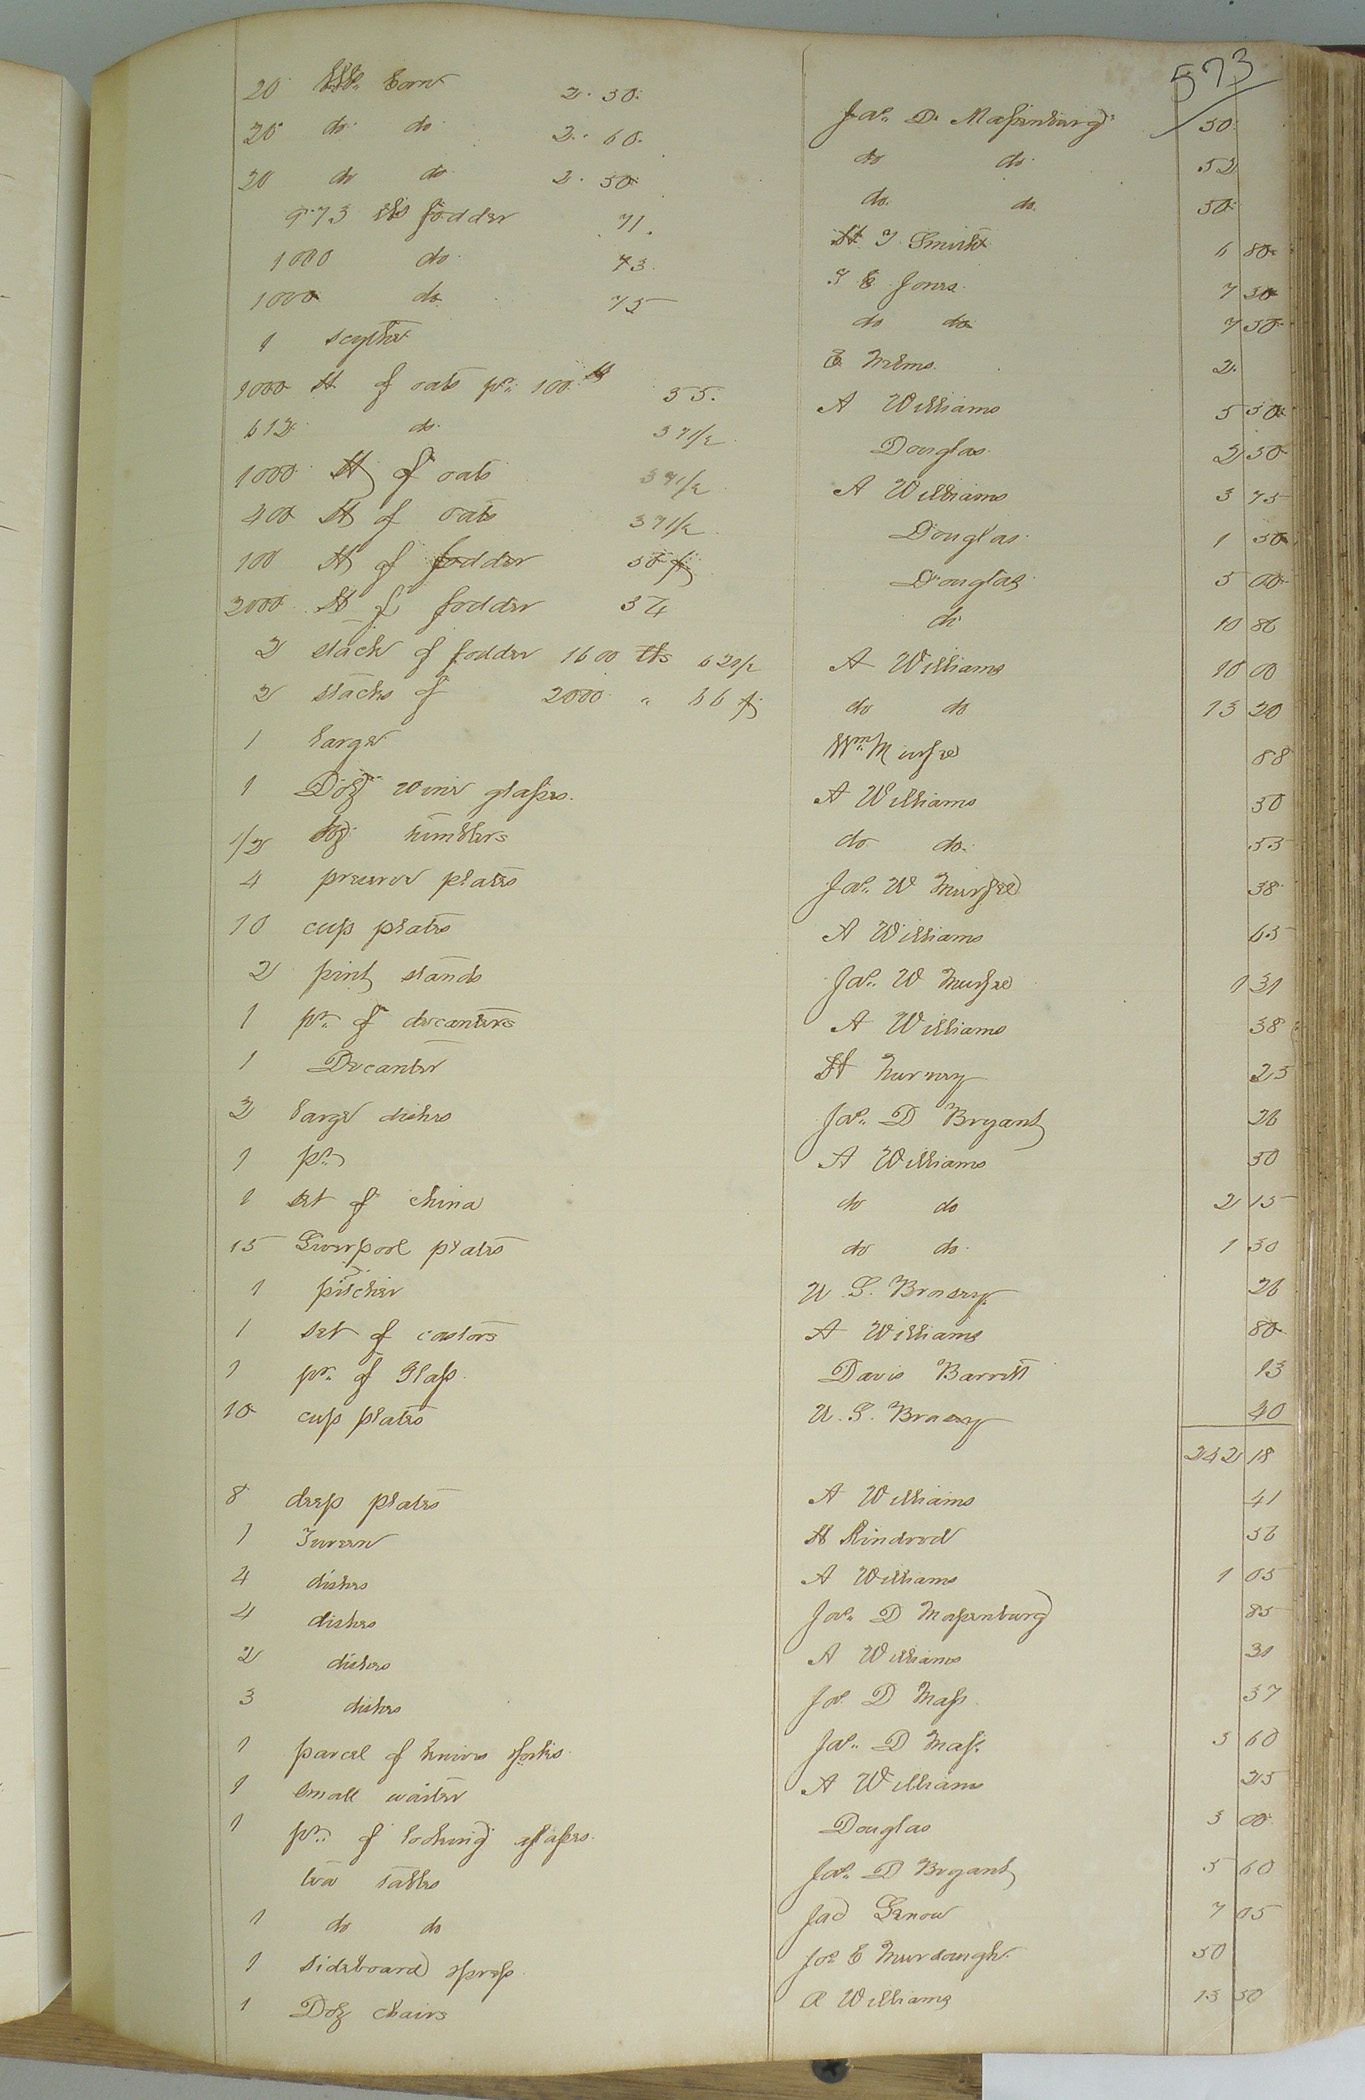 573
20 bbls Corn 2.50. Jas. D. Massenburg 50.
20 do do 2.60. do do 52
20 do do 2.50 do do 50.
973 lbs fodder 71. H T Smith 6 80.
1000 do 73. T E Jones 7 30
1000 do 75 do do 7 50
1 scythe E Mems 2.
1000 lb of oats pr. 100 lb 55. A Williams 5 50
612 do. 37 1/2 Douglas 2 30
1000 lb of oats 37 1/2 A Williams 3 75
400 lb of oats 37 1/2 Douglas 1 50
100 lb of fodder 50 Douglas 5 00
2000 lb of fodder 54 do 10 80
2 stack of fodder 1600 lbs 62 1/2 A Williams 10 00
2 stacks of 2000 " 66 do do 13 20
1 large Wm. Murfee 88
1 Doz wine glasses. A Williams 50
1/2 doz. tumblers do do. 55
4 preserve plates Jas. W Murfee 38
10 cup plates A Williams 65
2 pint stands Jas. W Murfee 1 31
1 pr. of decanters A Williams 38
1 Decanter H Nurney 25
2 large dishes Jas. D Bryant 26
1 pr A Williams 50
1 set of china do do 2 15
15 Liverpool plates do do. 1 30
1 pitcher U. S. Brasey 26
1 set of castors A Williams 80
1 pr. of Glass. Davis Barrett 13
10 cup plates U. S. Brasey 40
242 18
8 deep plates A Williams 41
1 Tureen H Rindred 56
4 dishes A Williams 1 05
4 dishes Jas. D Massenburg 85
2 dishes A Williams 31
3 dishes Jas. D Mass. 37
1 parcel of knives &forks Jas. D Mass. 3 60
1 small waiter A Williams 25
1 pr. of looking glasses. Douglas 3 00
tea tables Jas. D Bryant 5 60
1 do do Jad 7 05
1 sideboard &press. Jos E Murdaugh. 50
1 Doz chairs A Williams 13 50